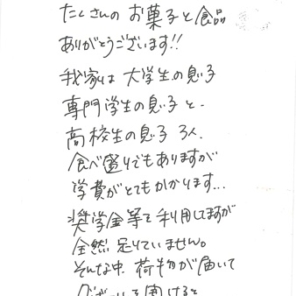 たくさんの お菓子と食品
ありがとうございます!!
我家は 大学生の息子
専門学生の息子 と、
高校生の息子 3人、
食べ盛りでもありますが
学費がとてもかかります...
奨学金等を利用してますが
全然 足りていません。
そんな中、荷物が届いて
ダンボールを開けると